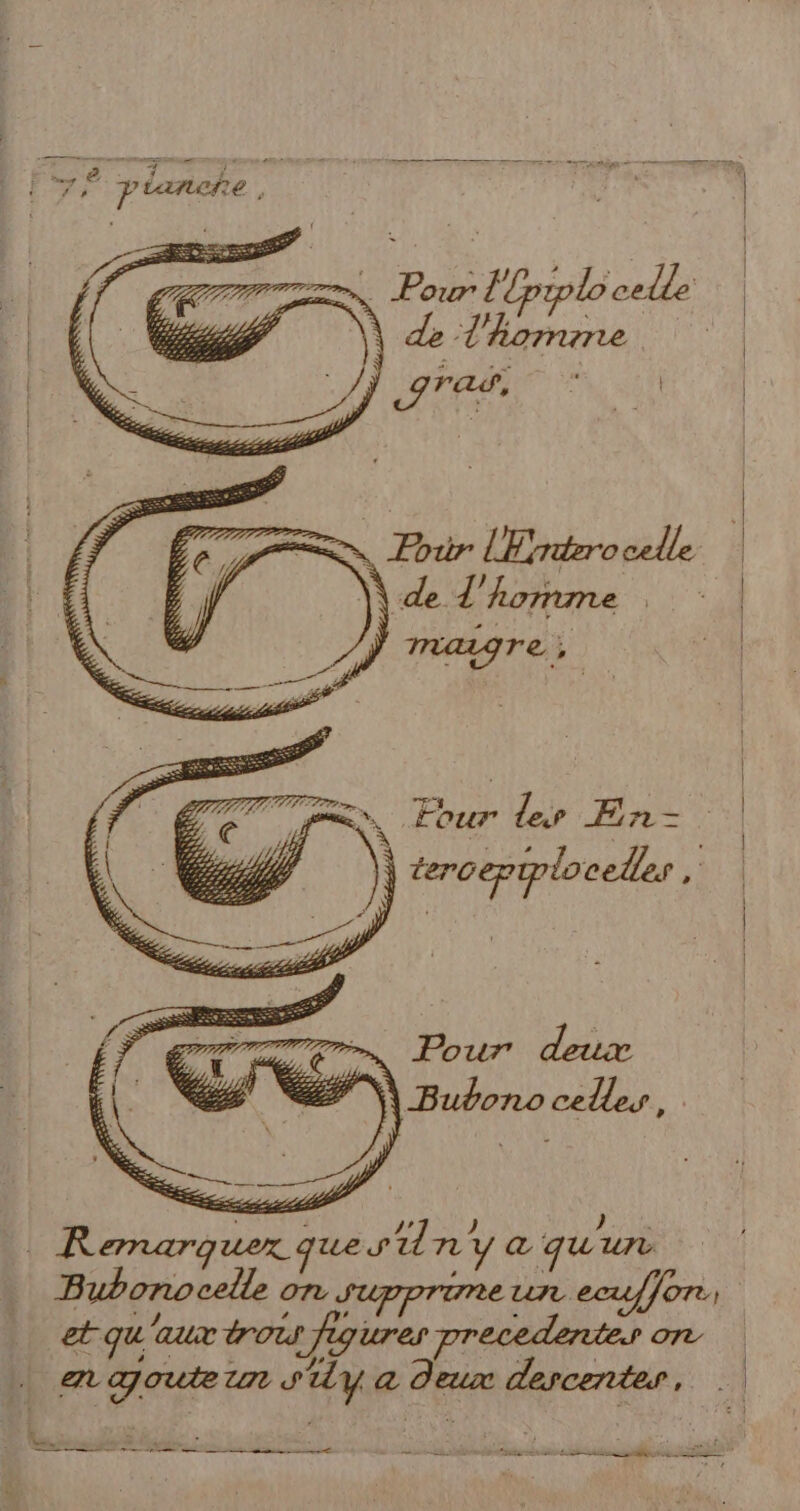 7.e planche,
Pour l'Epiplocelle
de l'homme
gras,
Pour l'Enterocelle
de l'homme
maigre,
Pour les En=
teroepiplocelles,
Pour deux
Bubonocelles,
Remarquez que s'il n'y a qu'un
Bubonocelle on supprime un ecusson,
et qu'aux trois figures precedentes on
en ajoute un s'il y a deux descentes,